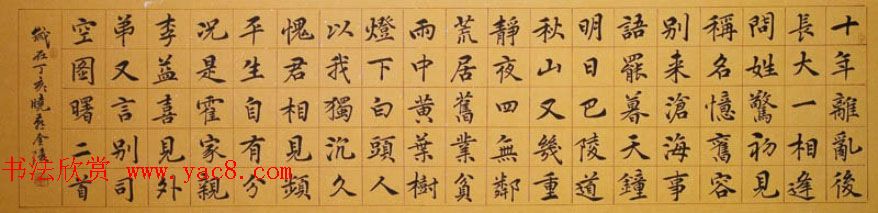 十年離亂後
長大一相逢
問姓驚初見
稱名憶舊容
別来滄海事
語罷暮天鐘
明日巴陵道
秋山又幾重
靜夜四無鄰
荒居舊業貧
雨中黃葉樹
燈下白頭人
以我獨沉久
愧君相見頻
平生自有分
况是霍家親
李益喜見外
弟又言別司
空圖曙二首
歲在丁亥
书法欣赏 www.yac8.com